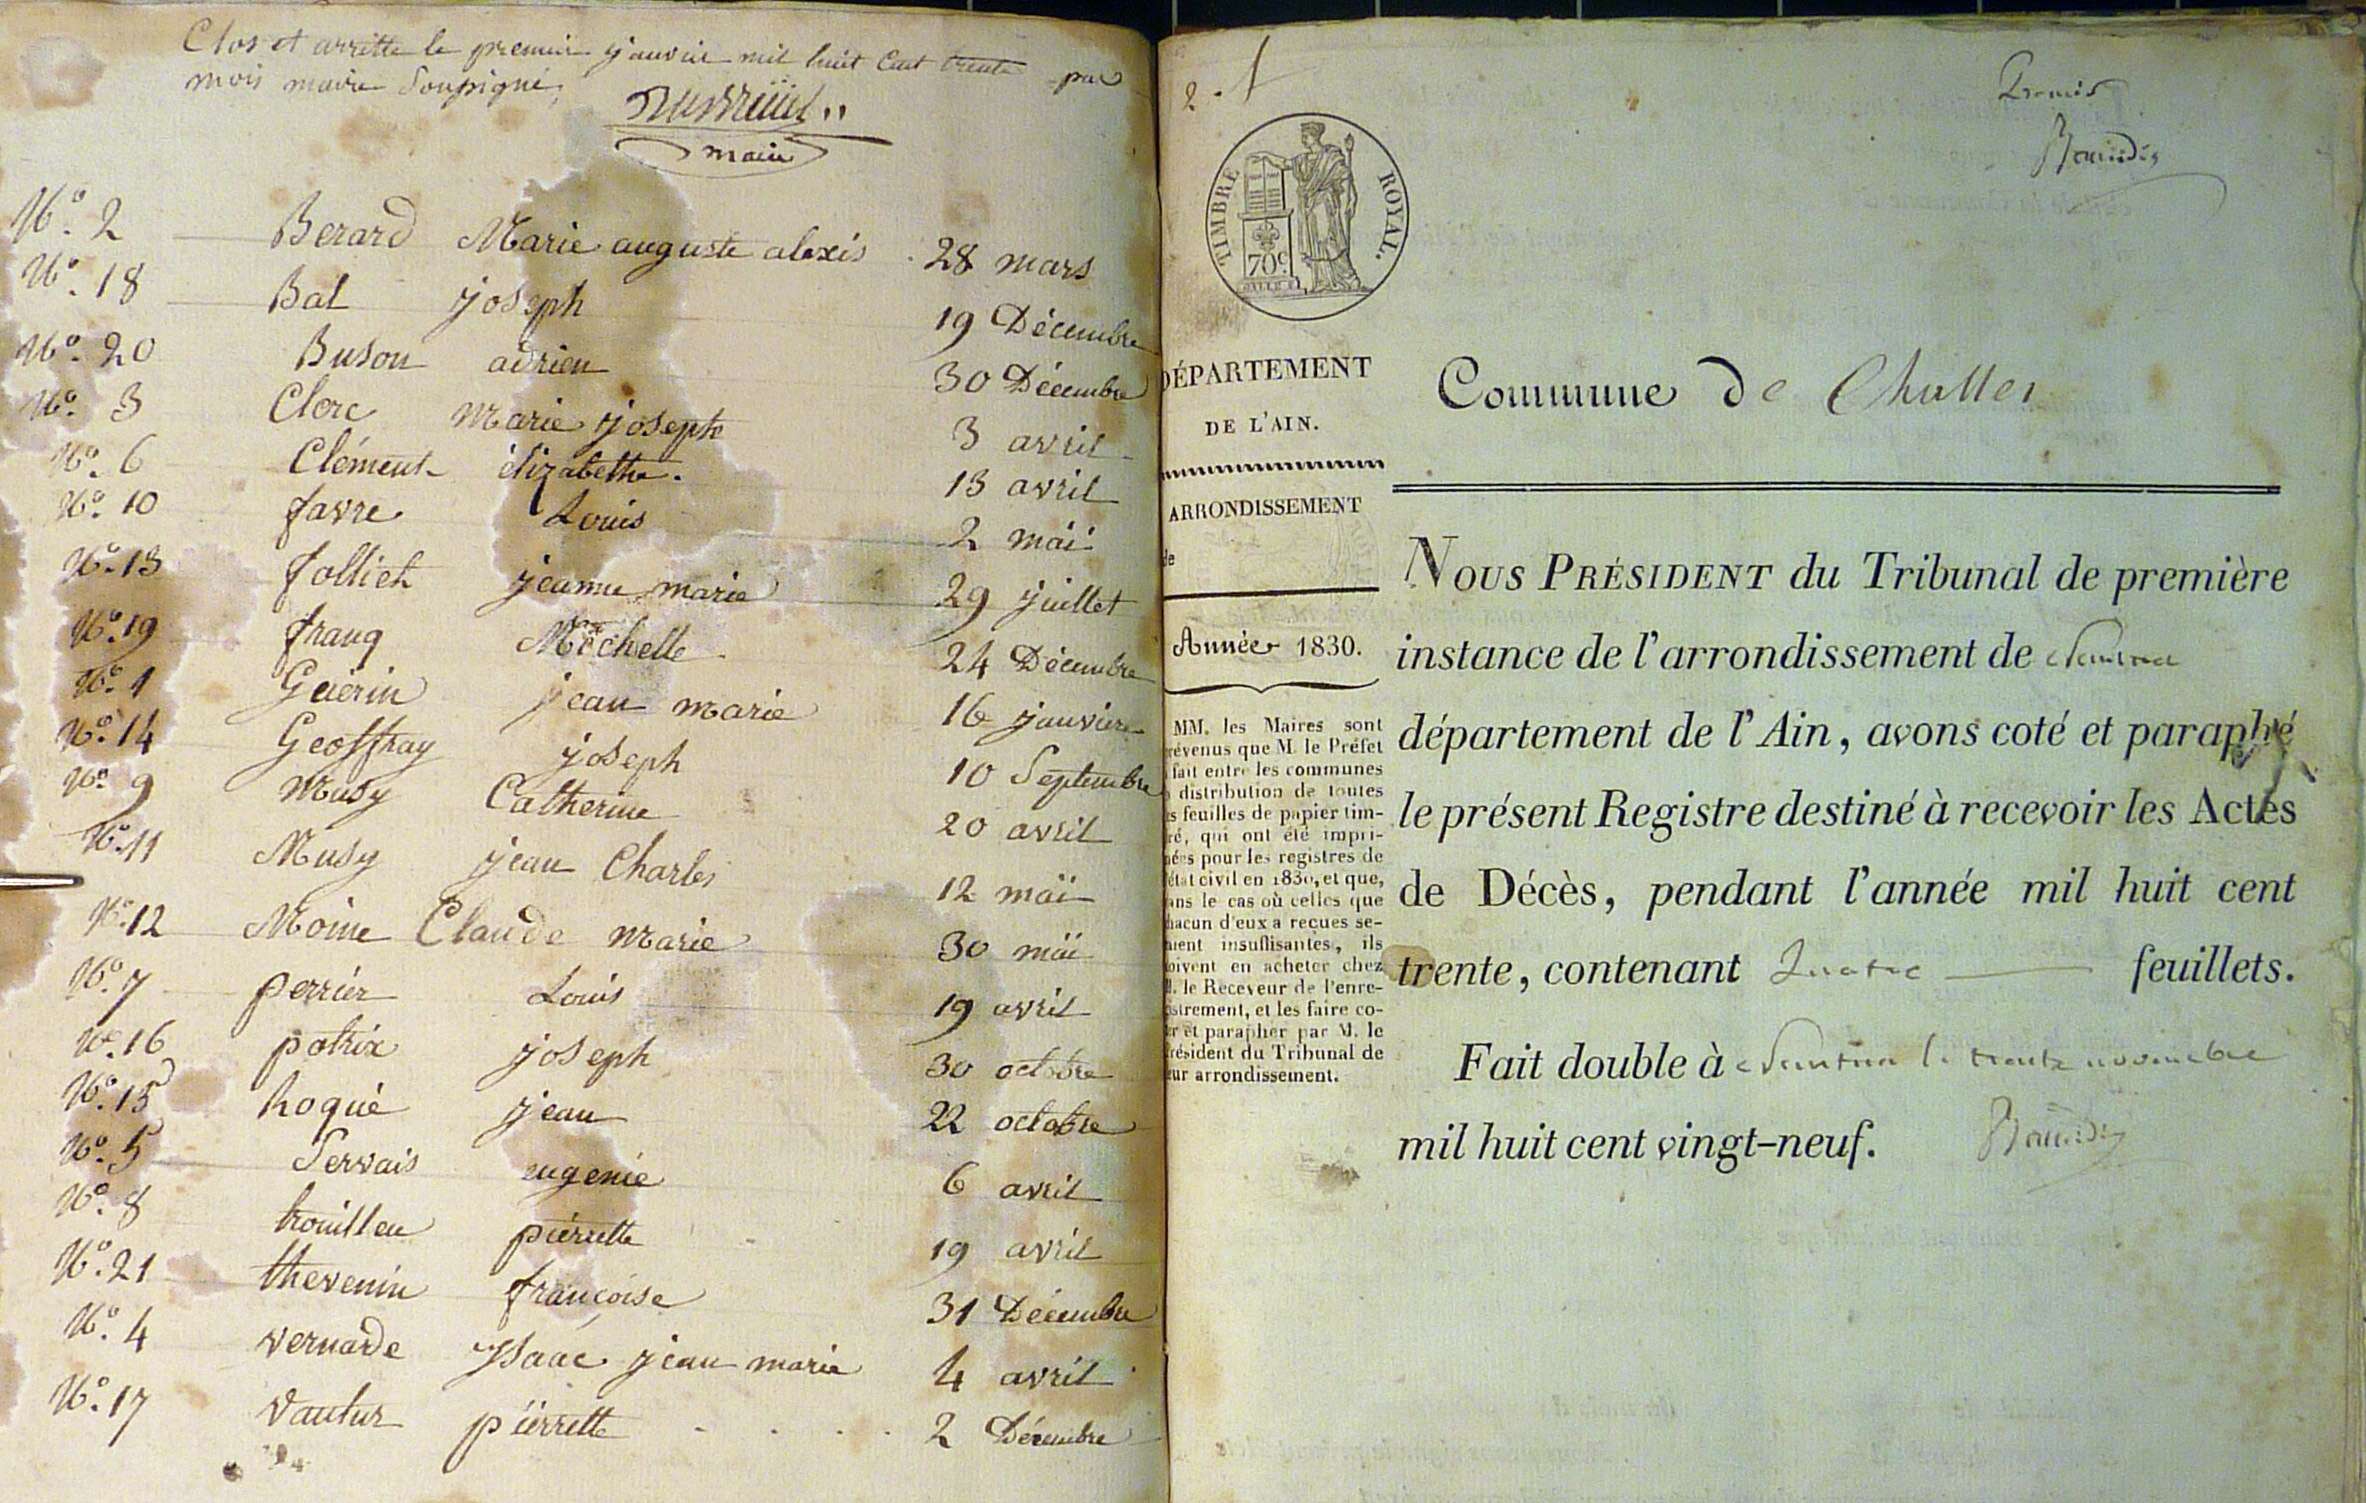 Clos et arretté le premier janvier mil huit cent trente par
mois maire Soussigné,
maire
No. 2 Berard Marie auguste alexis 28 mars
No. 18 Bal joseph 19 Décembre
No. 20 Buson adrien 30 Décembre
No. 3 Clerc Marie joseph 3 avril
No. 6 Clément élizabethe. 13 avril
No. 10 favre Louis 2 mai
No. 13 folliet jeanne marie 29 juillet
No. 19 franq Michelle 24 Décembre
No. 1 Guérin jean marie 16 janvier
No. 14 Geoffray joseph 10 Septembre
No. 9 Musy Catherine 20 avril
No. 11 Musy jean Charles 12 mai
No. 12 Moine Claude marie 30 mai
No. 7 perrier Louis 19 avril
No. 16 patrix joseph 30 octobre
No. 15 Roqué jean 22 octobre
No. 5 Servais eugenie 6 avril
No. 8 trouilleu pierrette 19 avril
No. 21 thevenin françoise 31 Décembre
No. 4 vernarde Isaac jean marie 4 avril
No. 17 vautur pierrette 2 Décembre
2.
Premier
TIMBRE ROYAL.
70c.
DÉPARTEMENT
DE L'AIN.
ARRONDISSEMENT
de
Année 1830.
MM. les Maires sont
révenus que M. le Préfet
fait entre les communes
distribution de toutes
s feuilles de papier tim-
ré, qui ont été impri-
ées pour les registres de
état civil en 1830, et que,
ans le cas où celles que
hacun d'eux a reçues se-
aient insuffisantes, ils
oivent en acheter chez
M. le Receveur de l'enre-
istrement, et les faire co-
er et parapher par M. le
résident du Tribunal de
eur arrondissement.
Commune de Challes
NOUS PRÉSIDENT du Tribunal de première
instance de l'arrondissement de Nantua
département de l'Ain, avons coté et paraphé
le présent Registre destiné à recevoir les Actes
de Décès, pendant l'année mil huit cent
trente, contenant Quatre feuillets.
Fait double à Nantua le trente novembre
mil huit cent vingt-neuf.